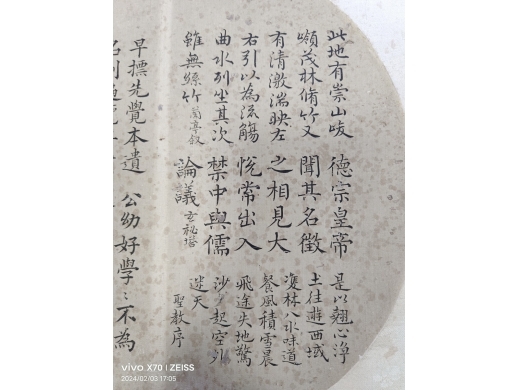 此地有崇山峻
嶺茂林脩竹又
有清激湍映左
右引以為流觴
曲水列坐其次
雖無絲竹 蘭亭叙
德宗皇帝
聞其名徵
之相見大
悅常出入
禁中與儒
論議 玄秘塔
是以翹心淨
土往遊西域
雙林八水味道
餐風積雪晨
飛途失地驚
沙夕起空外
迷天
聖教序
早標先覺本遺
公幼好學〻不為
vivo X70 | ZEISS
2024/02/03 17:05